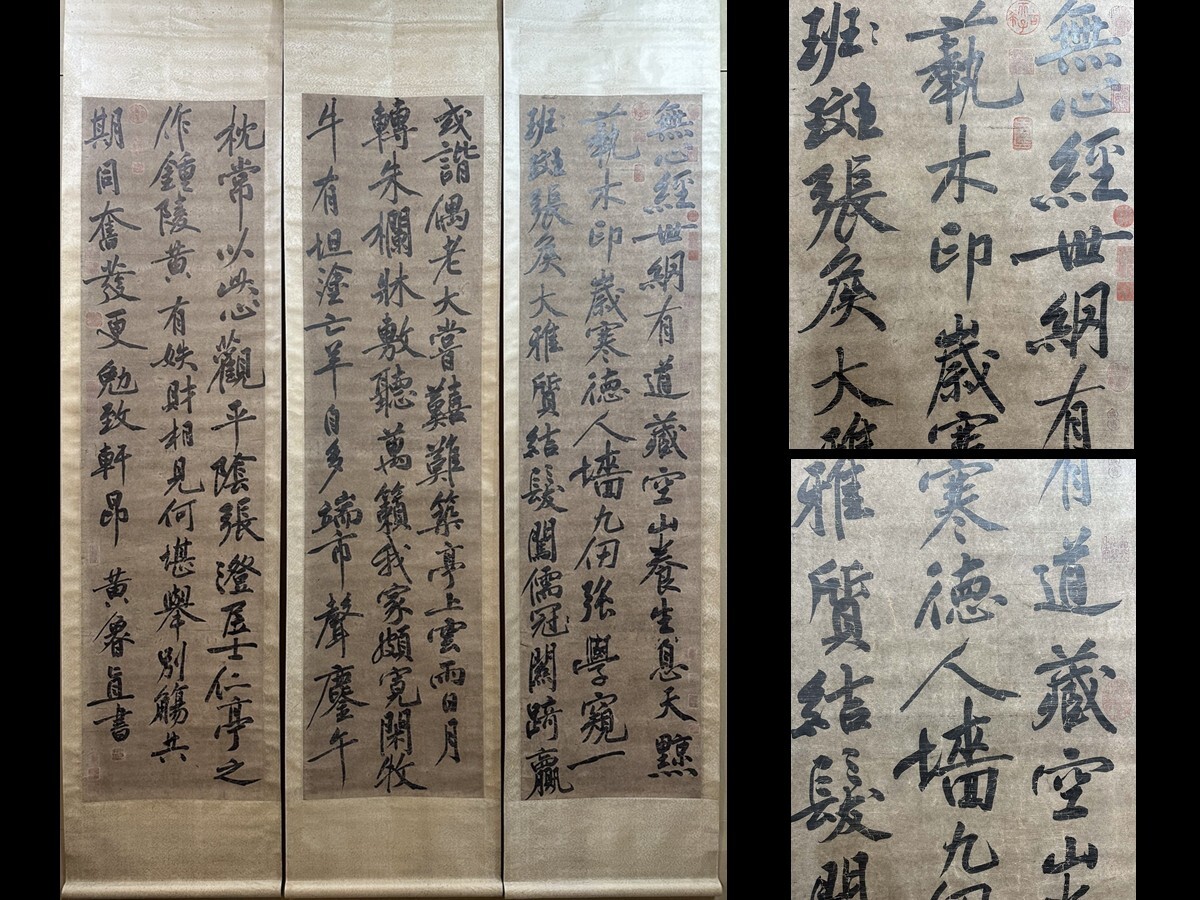 無心經世網有道藏空山養生息天黥
藝木印歲寒德人墻九仞張學窺一
班〻斑張矦大雅質結髮闖儒冠〻闢踦贏
或諧偶老大嘗囏難築亭上雲雨日月
轉朱欄牀敷聽萬籟我家頗寬閑牧
牛有坦塗亡羊自多端市聲鏖午
枕常以此心觀平陰張澄居士仁亭之
作鍾陵黃有姝財相見何堪舉別觴共
期同奮發更勉致軒昂 黃魯直書
無心經世網有
藝木印歲寒
班〻斑張矦大雅
有道藏空山
寒德人墻九仞
雅質結髮闖